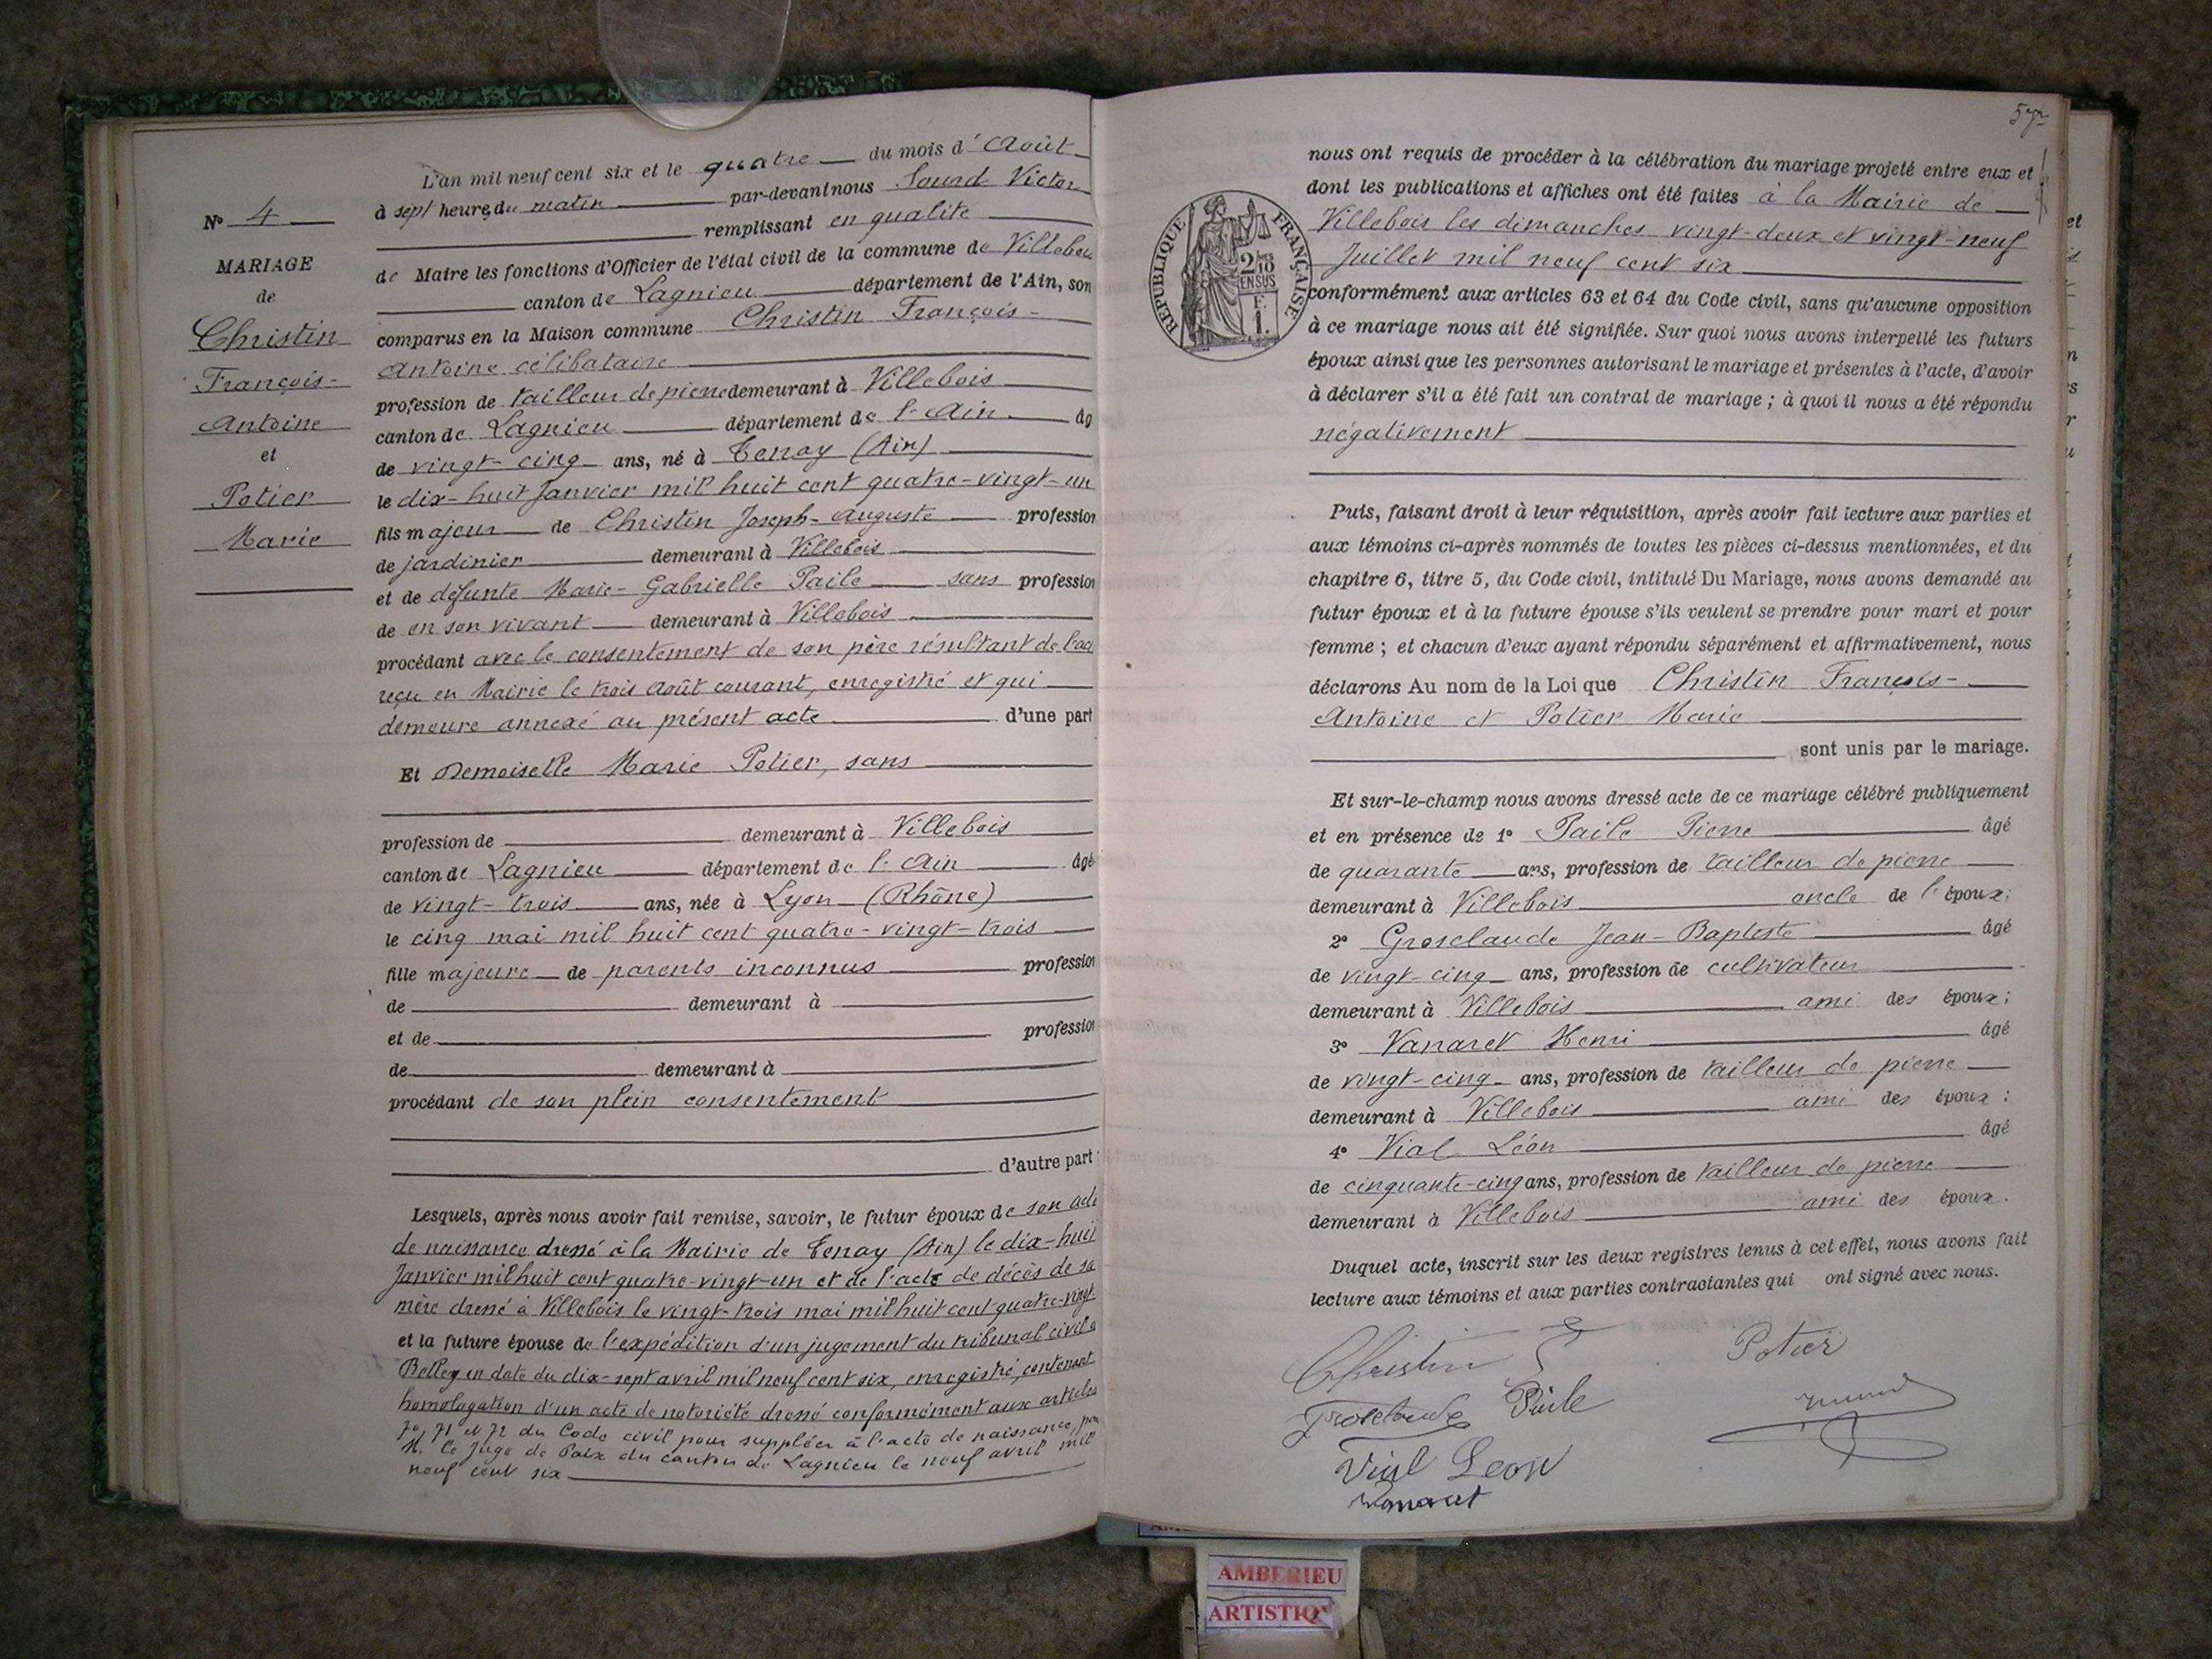 L'an mil neuf cent six et le quatre du mois d'Août
à sept heures du matin par-devant nous Sourd Victor
remplissant en qualité
de Maire les fonctions d'Officier de l'état civil de la commune de Villebois
canton de Lagnieu département de l'Ain, son
comparus en la Maison commune Christin François-
Antoine célibataire
profession de tailleur de pierre demeurant à Villebois
canton de Lagnieu département de l'Ain âg
de vingt-cinq ans, né à Tenay (Ain)
le dix-huit Janvier mil huit cent quatre-vingt-un
fils majeur de Christin Joseph-Auguste profession
de jardinier demeurant à Villebois
et de défunte Marie-Gabrielle Paile sans profession
de en son vivant demeurant à Villebois
procédant avec le consentement de son père résultant de l'ac
reçu en Mairie le trois Août courant, enregistré et qui
demeure annexé au présent acte d'une part
Et Demoiselle Marie Potier, sans
profession de demeurant à Villebois
canton de Lagnieu département de l'Ain âgé
de vingt-trois ans, née à Lyon (Rhône)
le cinq mai mil huit cent quatre-vingt-trois
fille majeure de parents inconnus profession
de demeurant à
et de profession
de demeurant à
procédant de son plein consentement
d'autre part
Lesquels, après nous avoir fait remise, savoir, le futur époux de son acte
de naissance dressé à la Mairie de Tenay (Ain) le dix-huit
Janvier mil huit cent quatre-vingt-un et de l'acte de décès de sa
mère dressé à Villebois le vingt-trois mai mil huit cent quatre-vingt
et la future épouse de l'expédition d'un jugement du tribunal civil
Belley en date du dix-sept avril mil neuf cent six, enregistré, contenant
homologation d'un acte de notoriété dressé conformément aux articles
70, 71 et 72 du Code civil pour suppléer à l'acte de naissance, par
M. le Juge de Paix du canton de Lagnieu le neuf avril mil
neuf cent six
No 4
MARIAGE
de
Christin
François-
Antoine
et
Potier
Marie
nous ont requis de procéder à la célébration du mariage projeté entre eux et
dont les publications et affiches ont été faites à la Mairie de
Villebois les dimanches vingt-deux et vingt-neuf
Juillet mil neuf cent six
conformément aux articles 63 et 64 du Code civil, sans qu'aucune opposition
à ce mariage nous ait été signifiée. Sur quoi nous avons interpellé les futurs
époux ainsi que les personnes autorisant le mariage et présentes à l'acte, d'avoir
à déclarer s'il a été fait un contrat de mariage ; à quoi il nous a été répondu
négativement
Puis, faisant droit à leur réquisition, après avoir fait lecture aux parties et
aux témoins ci-après nommés de toutes les pièces ci-dessus mentionnées, et du
chapitre 6, titre 5, du Code civil, intitulé Du Mariage, nous avons demandé au
futur époux et à la future épouse s'ils veulent se prendre pour mari et pour
femme ; et chacun d'eux ayant répondu séparément et affirmativement, nous
déclarons Au nom de la Loi que Christin François-
Antoine et Potier Marie
sont unis par le mariage.
Et sur-le-champ nous avons dressé acte de ce mariage célébré publiquement
et en présence de 1° Paile Pierre âgé
de quarante ans, profession de tailleur de pierre
demeurant à Villebois oncle de l'époux;
2° Grosclaude Jean-Baptiste âgé
de vingt-cinq ans, profession de cultivateur
demeurant à Villebois ami des époux;
3° Vanaret Henri âgé
de vingt-cinq ans, profession de tailleur de pierre
demeurant à Villebois ami des époux ;
4° Vial Léon âgé
de cinquante-cinq ans, profession de tailleur de pierre
demeurant à Villebois ami des époux.
Duquel acte, inscrit sur les deux registres tenus à cet effet, nous avons fait
lecture aux témoins et aux parties contractantes qui ont signé avec nous.
Christin F Potier
Grosclaude Paile
Vial Leon
Vanaret
RÉPUBLIQUE FRANÇAISE
2 10
EN SUS
F.
1.
AMBERIEU
ARTISTIQ